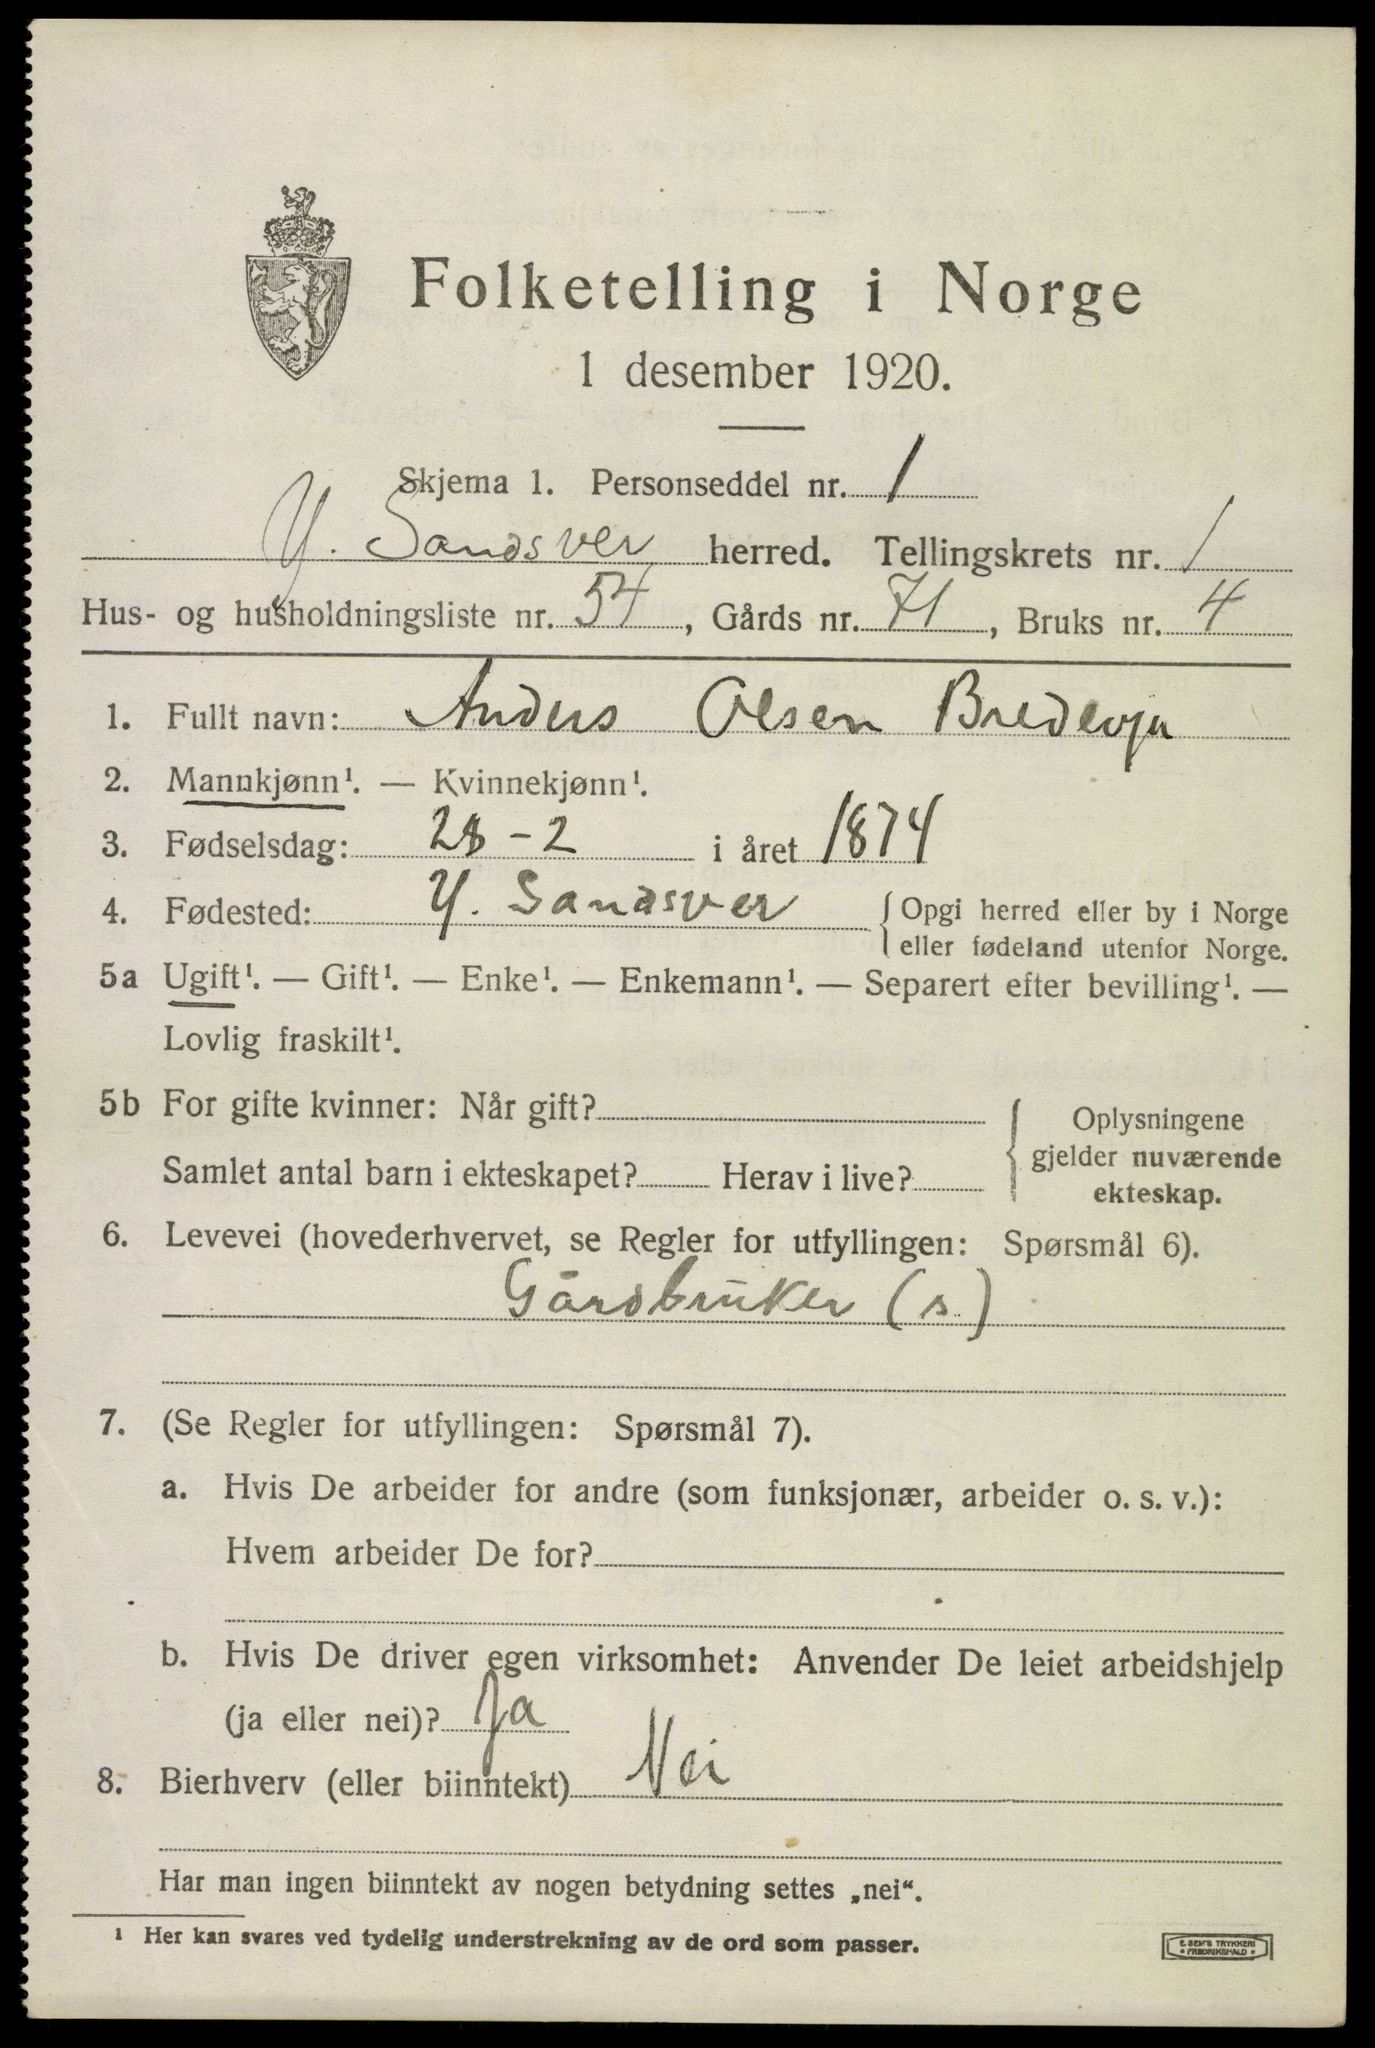 Folketelling i Norge
1 desember 1920.
Skjema 1. Personseddel nr. 1
Y. Sandsver herred. Tellingskrets nr. 1
Hus- og husholdningsliste nr. 54, Gårds nr. 71, Bruks nr. 4
1. Fullt navn: Anders Olsen
2. Mannkjønn¹. — Kvinnekjønn¹.
3. Fødselsdag: 28 - 2 i året 1874
4. Fødested: Y. Sandsver { Opgi herred eller by i Norge
eller fødeland utenfor Norge.
5a Ugift¹. — Gift¹. — Enke¹. — Enkemann¹. — Separert efter bevilling¹. —
Lovlig fraskilt¹.
5b For gifte kvinner: Når gift? { Oplysningene
gjelder nuværende
Samlet antal barn i ekteskapet? Herav i live? ekteskap.
6. Levevei (hovederhvervet, se Regler for utfyllingen: Spørsmål 6).
Gårdbruker (s)
7. (Se Regler for utfyllingen: Spørsmål 7).
a. Hvis De arbeider for andre (som funksjonær, arbeider o. s. v.):
Hvem arbeider De for?
b. Hvis De driver egen virksomhet: Anvender De leiet arbeidshjelp
(ja eller nei)? Ja
8. Bierhverv (eller biinntekt) Nei
Har man ingen biinntekt av nogen betydning settes „nei“.
¹ Her kan svares ved tydelig understrekning av de ord som passer.
E. SEM'S TRYKKERI
• FREDRIKSHALD •